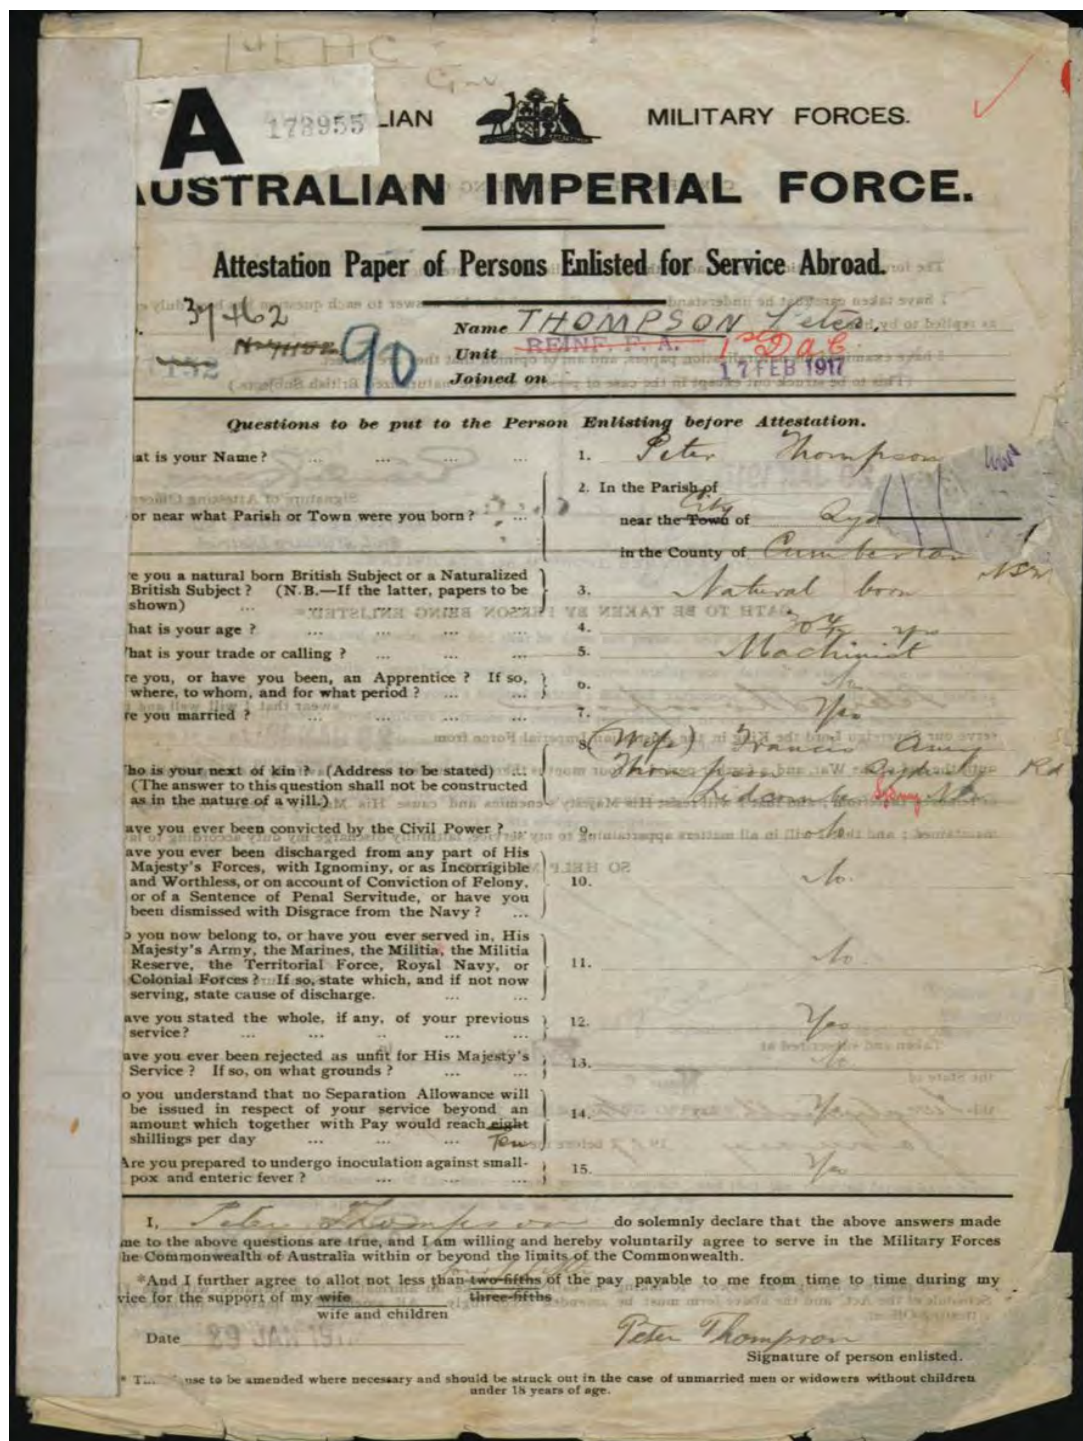 A
178955
LIAN MILITARY FORCES.
AUSTRALIAN IMPERIAL FORCE.
Attestation Paper of Persons Enlisted for Service Abroad.
37462
90
Name THOMPSON Peter.
Unit REINF. F. A. 1st D a C
Joined on 17 FEB 1917
Questions to be put to the Person Enlisting before Attestation.
at is your Name? ... ... ... ... 1. Peter Thompson
2. In the Parish of
or near what Parish or Town were you born? ... near the Town of City
in the County of Cumberland
NSW
e you a natural born British Subject or a Naturalized
British Subject? (N.B.—If the latter, papers to be 3. Natural born
shown) ...
hat is your age? ... ... ... ... 4. 30 yrs
hat is your trade or calling? ... ... ... 5. Machinist
re you, or have you been, an Apprentice? If so,
where, to whom, and for what period? ... ... 6. No
re you married? ... ... ... ... 7. Yes
8. (Wife) Francis Amy
ho is your next of kin? (Address to be stated) ... Thompson Rd
(The answer to this question shall not be constructed
as in the nature of a will.) Lidcombe Sydney
ave you ever been convicted by the Civil Power? ... 9. No
ave you ever been discharged from any part of His
Majesty's Forces, with Ignominy, or as Incorrigible
and Worthless, or on account of Conviction of Felony, 10. No.
or of a Sentence of Penal Servitude, or have you
been dismissed with Disgrace from the Navy? ...
o you now belong to, or have you ever served in, His
Majesty's Army, the Marines, the Militia, the Militia
Reserve, the Territorial Force, Royal Navy, or 11. No.
Colonial Forces? If so, state which, and if not now
serving, state cause of discharge. ... ...
ave you stated the whole, if any, of your previous 12. Yes
service? ... ... ... ... ...
ave you ever been rejected as unfit for His Majesty's 13. No
Service? If so, on what grounds? ... ...
o you understand that no Separation Allowance will
be issued in respect of your service beyond an 14. Yes
amount which together with Pay would reach eight
shillings per day ... ... ... Ten
Are you prepared to undergo inoculation against small- 15. Yes
pox and enteric fever? ... ... ...
I, Peter Thompson do solemnly declare that the above answers made
me to the above questions are true, and I am willing and hereby voluntarily agree to serve in the Military Forces
he Commonwealth of Australia within or beyond the limits of the Commonwealth.
*And I further agree to allot not less than two-fifths of the pay payable to me from time to time during my
vice for the support of my wife three-fifths
wife and children
Date Peter Thompson
Signature of person enlisted.
use to be amended where necessary and should be struck out in the case of unmarried men or widowers without children
under 18 years of age.